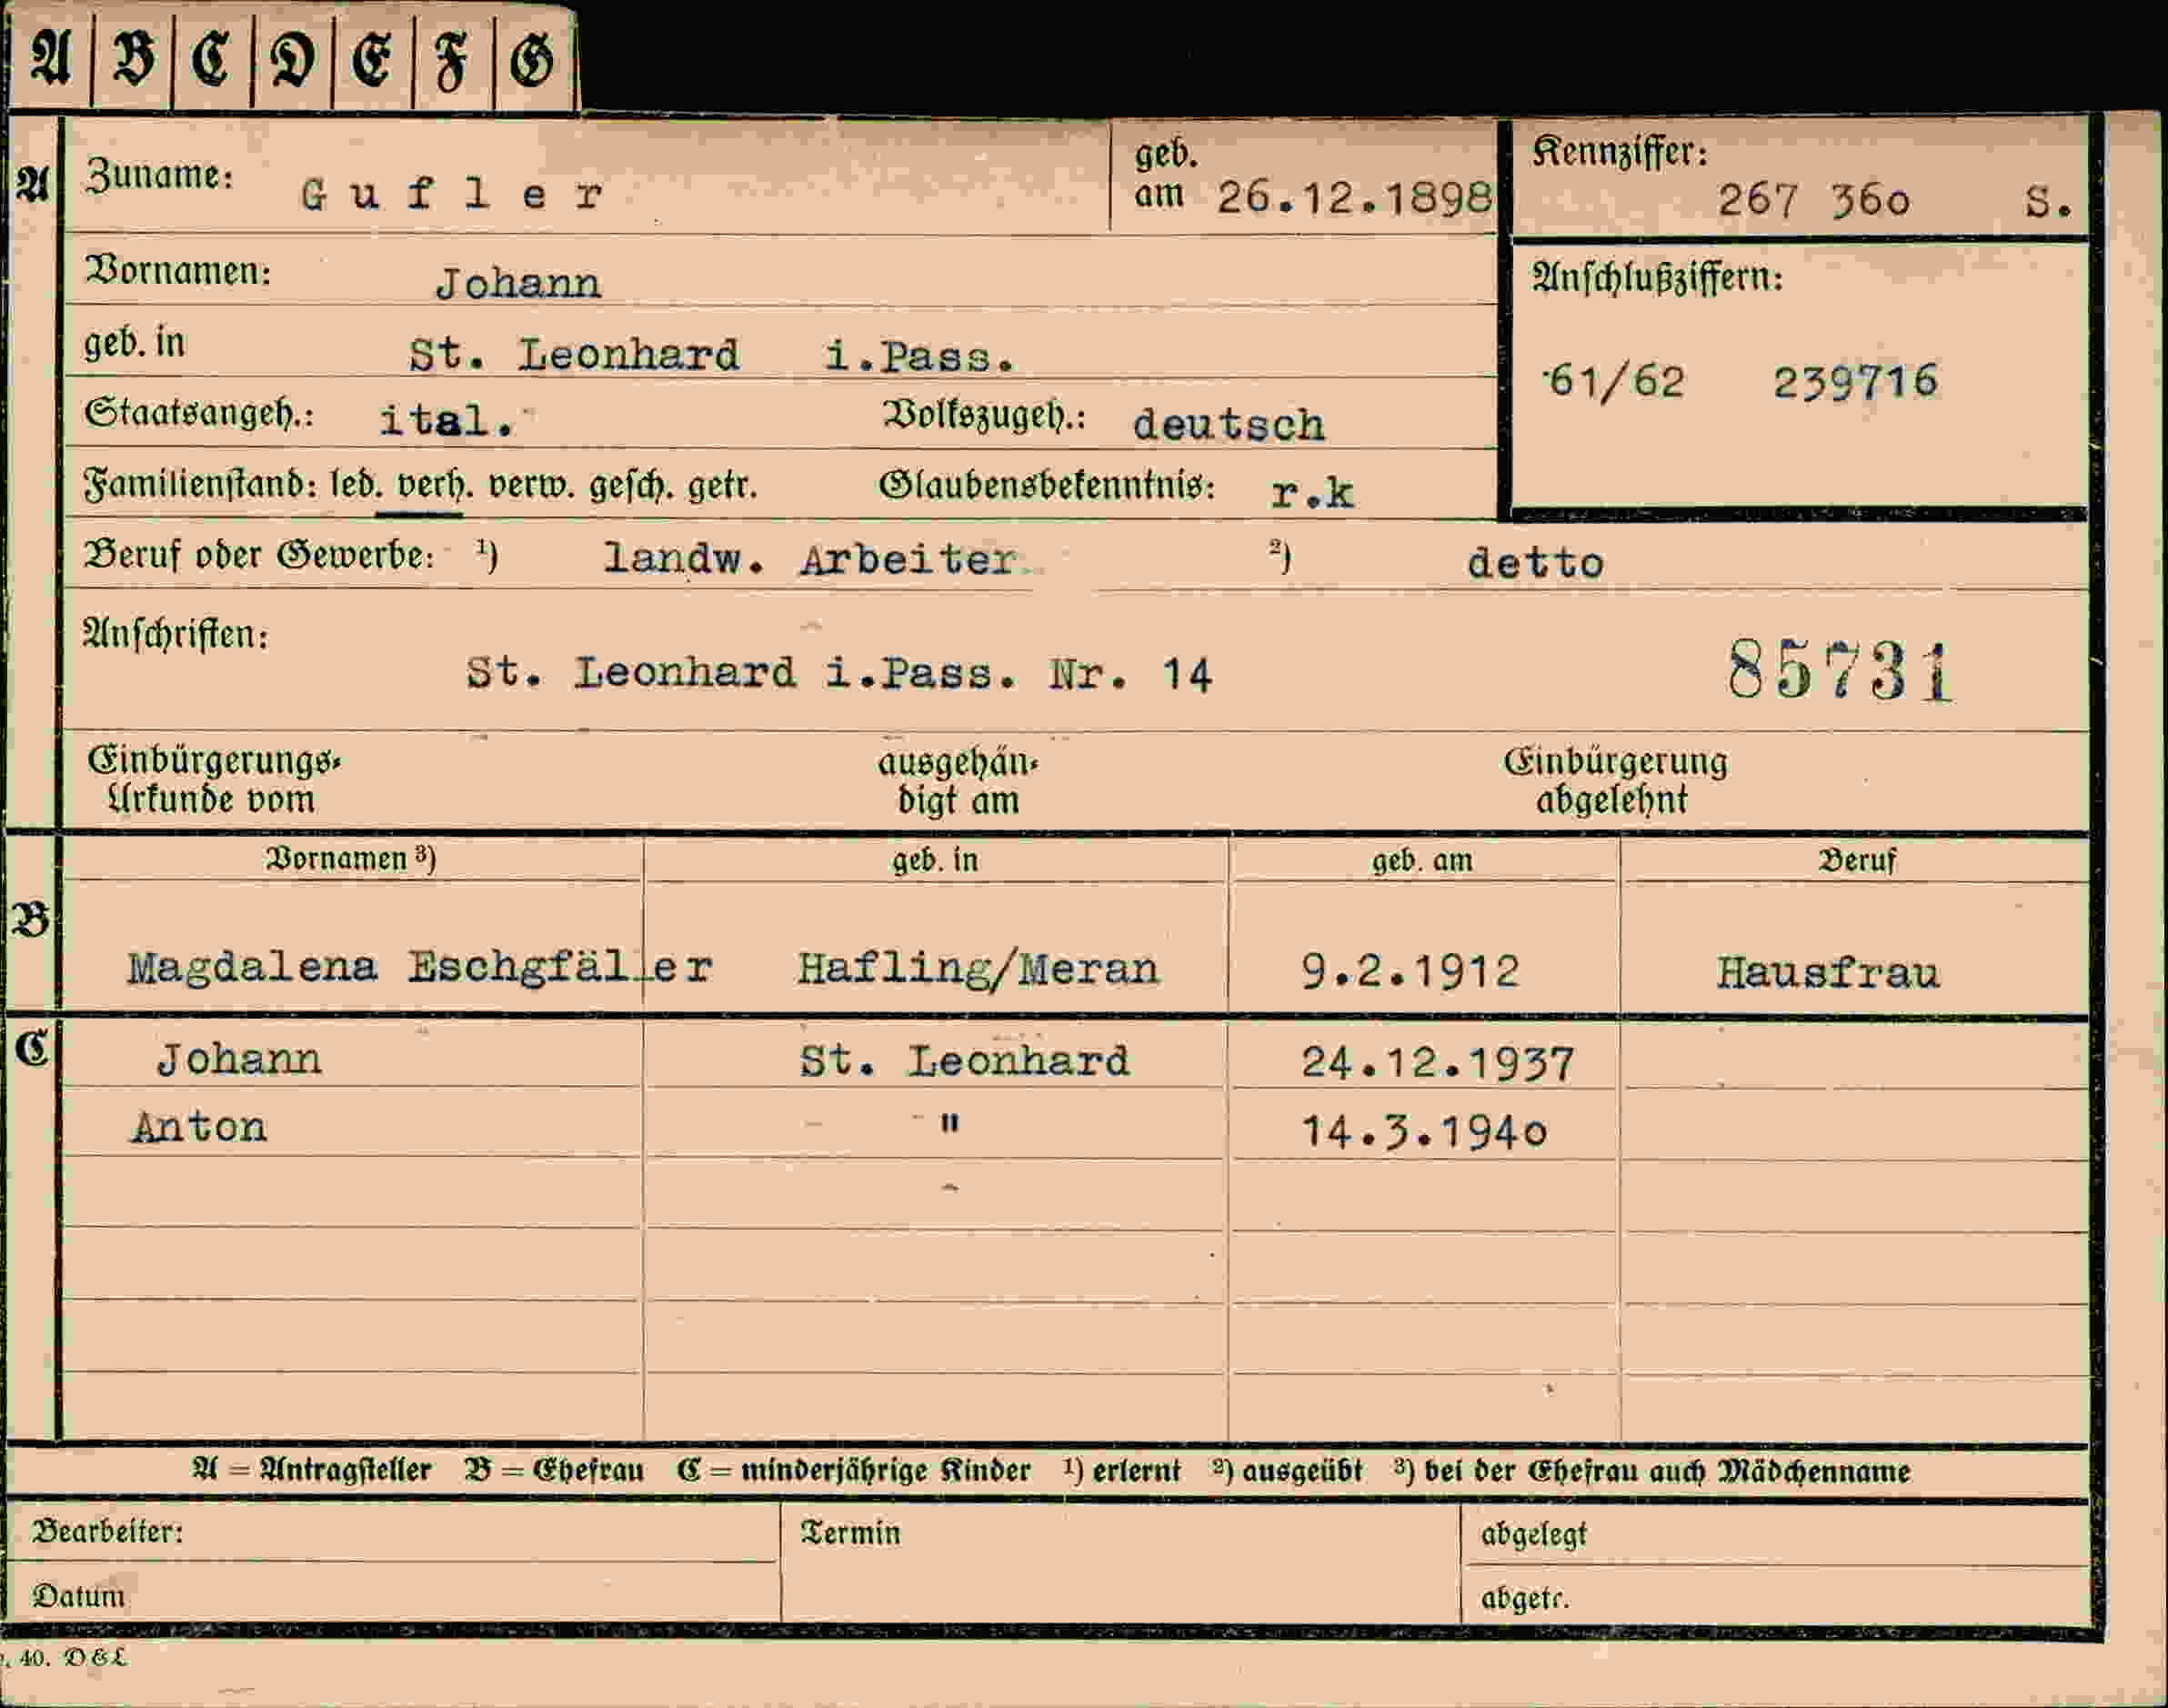 A B C D E F G
A Zuname: Gufler geb. am 26.12.1898 Kennziffer: 267 360 S.
Vornamen: Johann Anschlußziffern:
geb. in St. Leonhard i.Pass. 61/62 239716
Staatsangeh.: ital. Volkszugeh.: deutsch
Familienstand: led. verh. verw. gesch. getr. Glaubensbekenntnis: r.k
Beruf oder Gewerbe: ¹) landw. Arbeiter ²) detto
Anschriften:
St. Leonhard i.Pass. Nr. 14 85731
Einbürgerungs- ausgehän- Einbürgerung
Urkunde vom digt am abgelehnt
Vornamen ³) geb. in geb. am Beruf
B Magdalena Eschgfäller Hafling/Meran 9.2.1912 Hausfrau
C Johann St. Leonhard 24.12.1937
Anton " 14.3.1940
A = Antragsteller B = Ehefrau C = minderjährige Kinder ¹) erlernt ²) ausgeübt ³) bei der Ehefrau auch Mädchenname
Bearbeiter: Termin abgelegt
Datum abgetr.
. 40. D & L